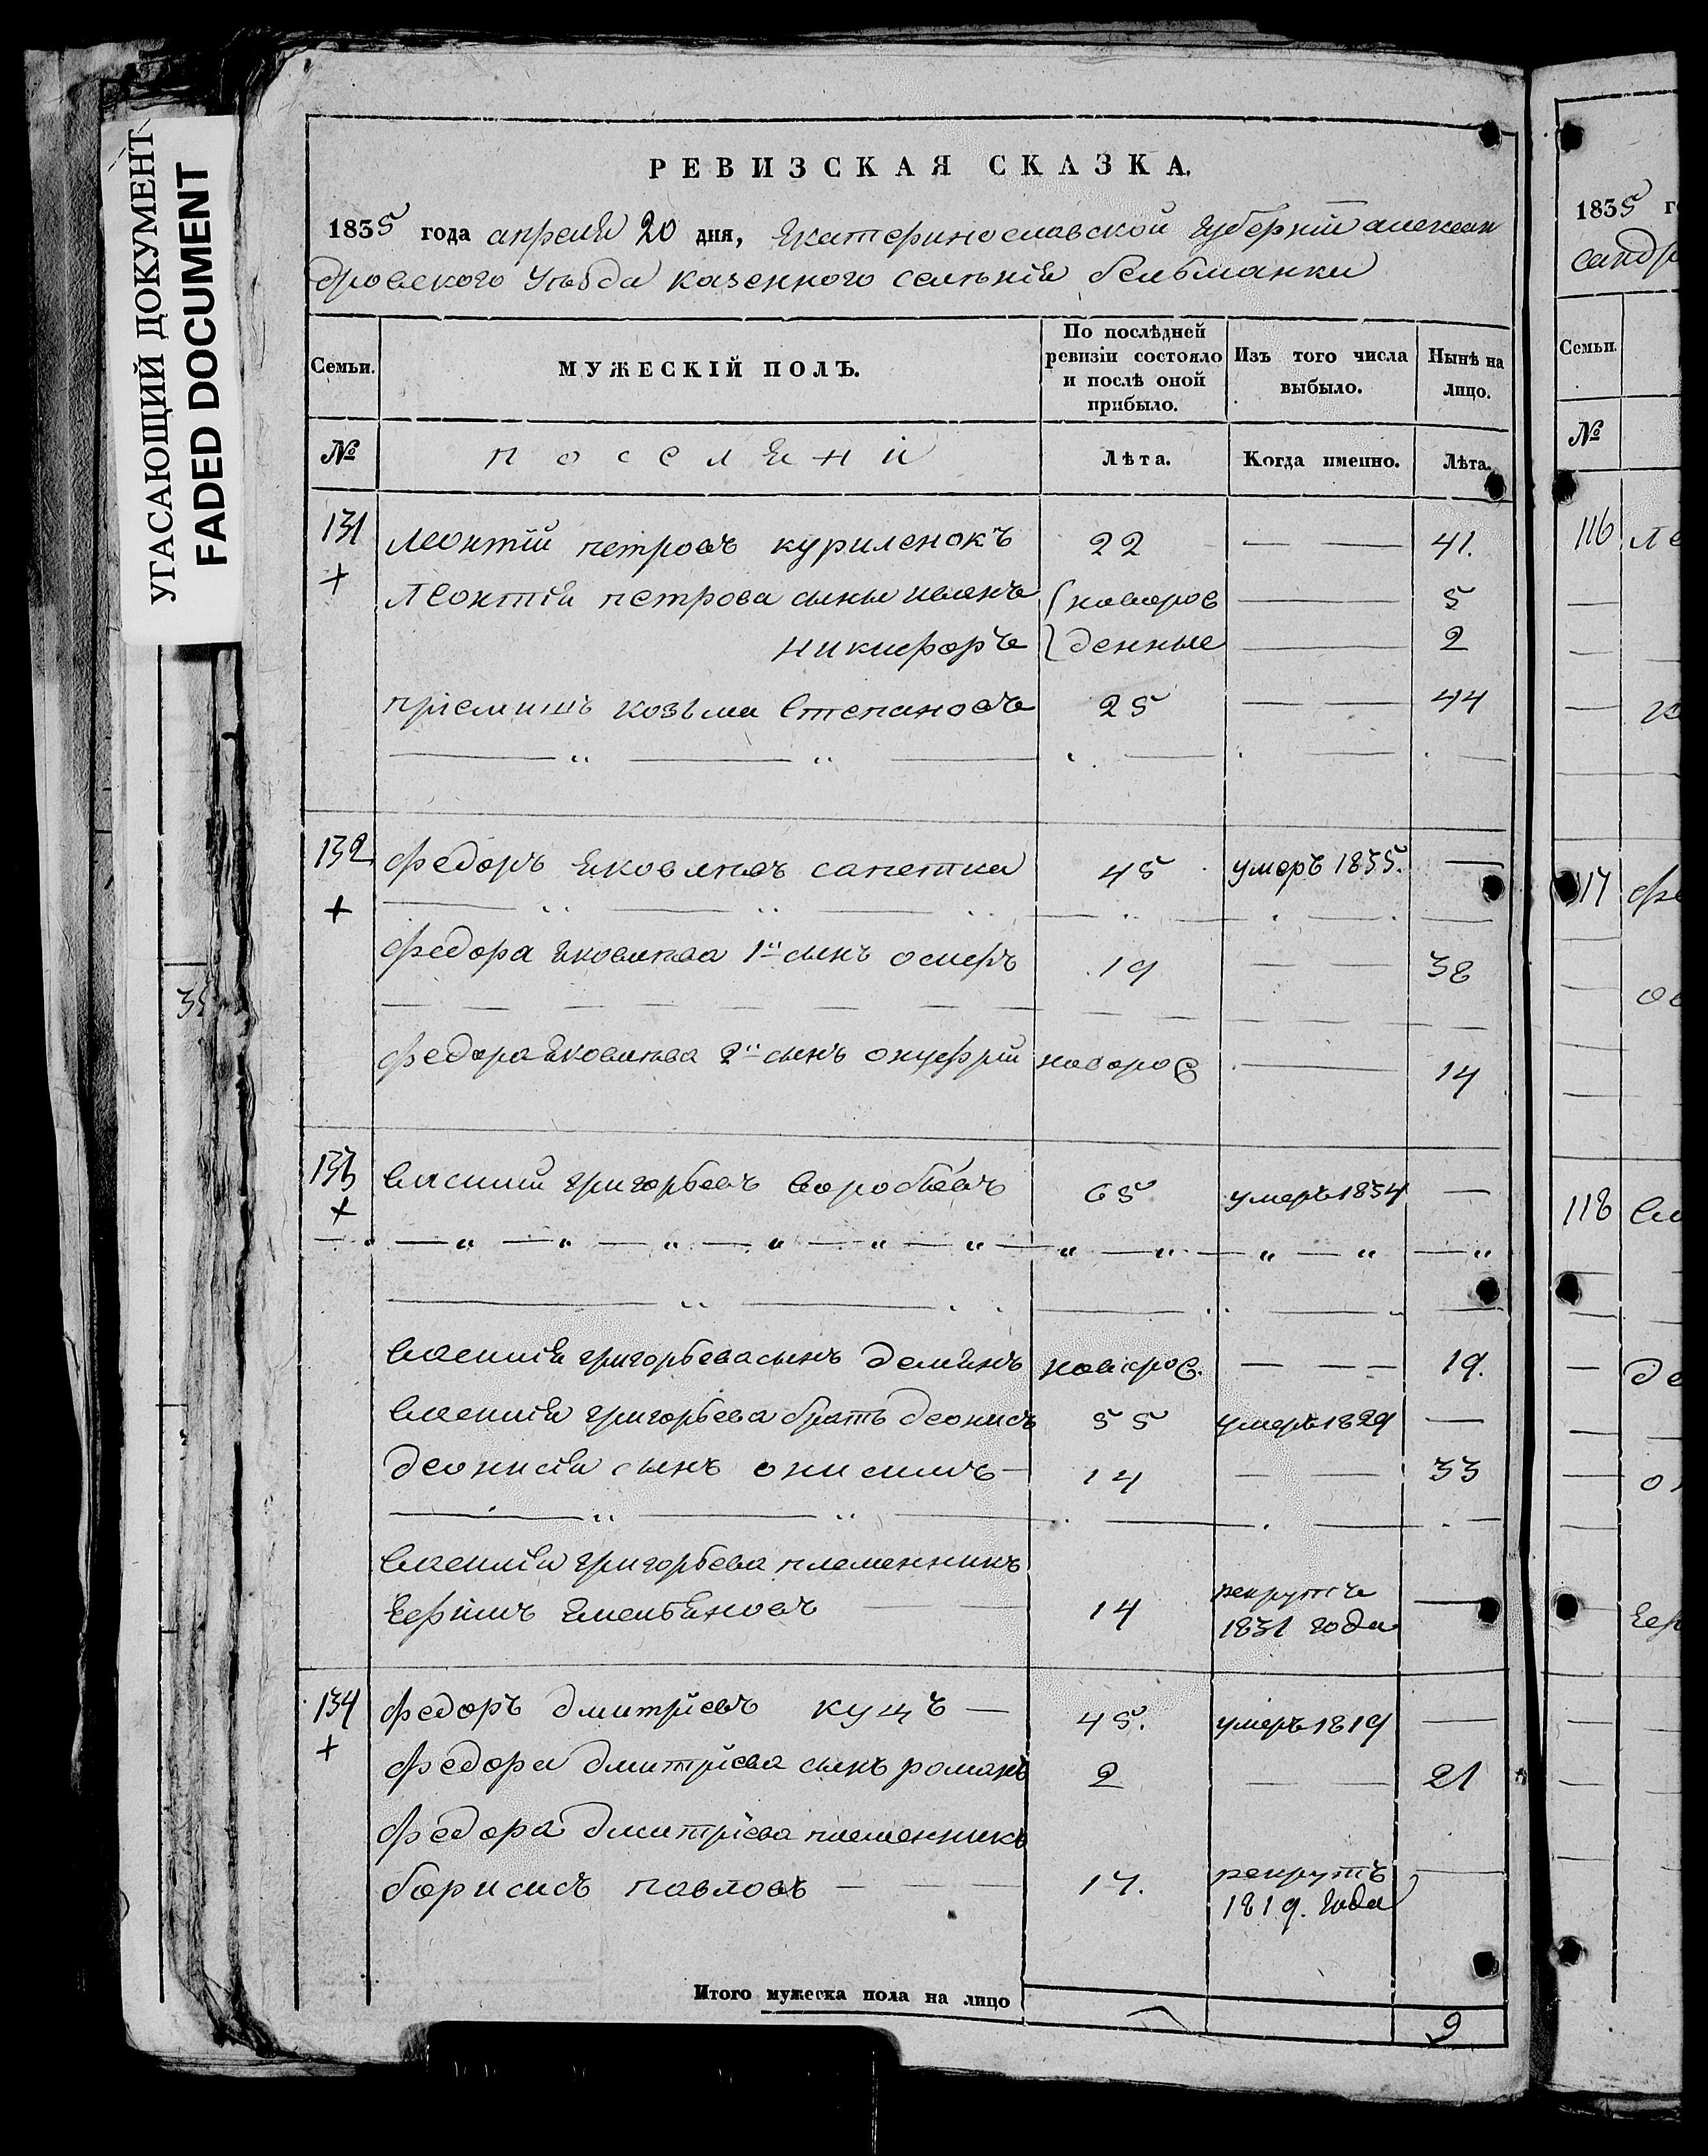 УГАСАЮЩИЙ ДОКУМЕНТ
FADED DOCUMENT
РЕВИЗСКАЯ СКАЗКА.
1835 года апреля 20 дня, Екатеринославской губернїи алексан
дровского уезда казенного селенїя бельманки
Семьи. МУЖЕСКІЙ ПОЛЪ. По послѣдней ревизіи состояло и послѣ оной прибыло. Изъ того числа выбыло. Нынѣ на лицо.
№ поселяни Лѣта. Когда именно. Лѣта.
131 леонтїй петровъ куриленокъ 22 — — 41.
+ леонтїя петрова сыны иванъ новорож — 5
никифоръ денные — 2
прїемишъ козьма степановъ 25 — — 44
132 федоръ яковлевъ сапетка 45 умеръ 1835. —
+
федора яковлева 1й сынъ осифъ 19 — — 38
федора яковлева 2й сынъ онуфрїй новорож — 14
133 василий григорьевъ воробьевъ 65 умеръ 1834 —
+
василїя григорьева сынъ демянъ новорож. — — — 19.
василїя григорьева братъ деонисъ 55 умеръ 1829 —
деонисїя сынъ онисимъ — 14 — — 33
василїя григорьева племенникъ
ефимъ емельяновъ — — 14 рекрутъ —
1831 года
134 федоръ дмитрїевъ куцъ — 45. умеръ 1819 —
+ федора дмитрїева сынъ романъ 2 — — 21
федора дмитрїева племенникъ
борисъ павловъ — — — 17. рекрутъ —
1819. года
Итого мужеска пола на лицо 9
1835
сандр
Семьи.
№
116
117
118